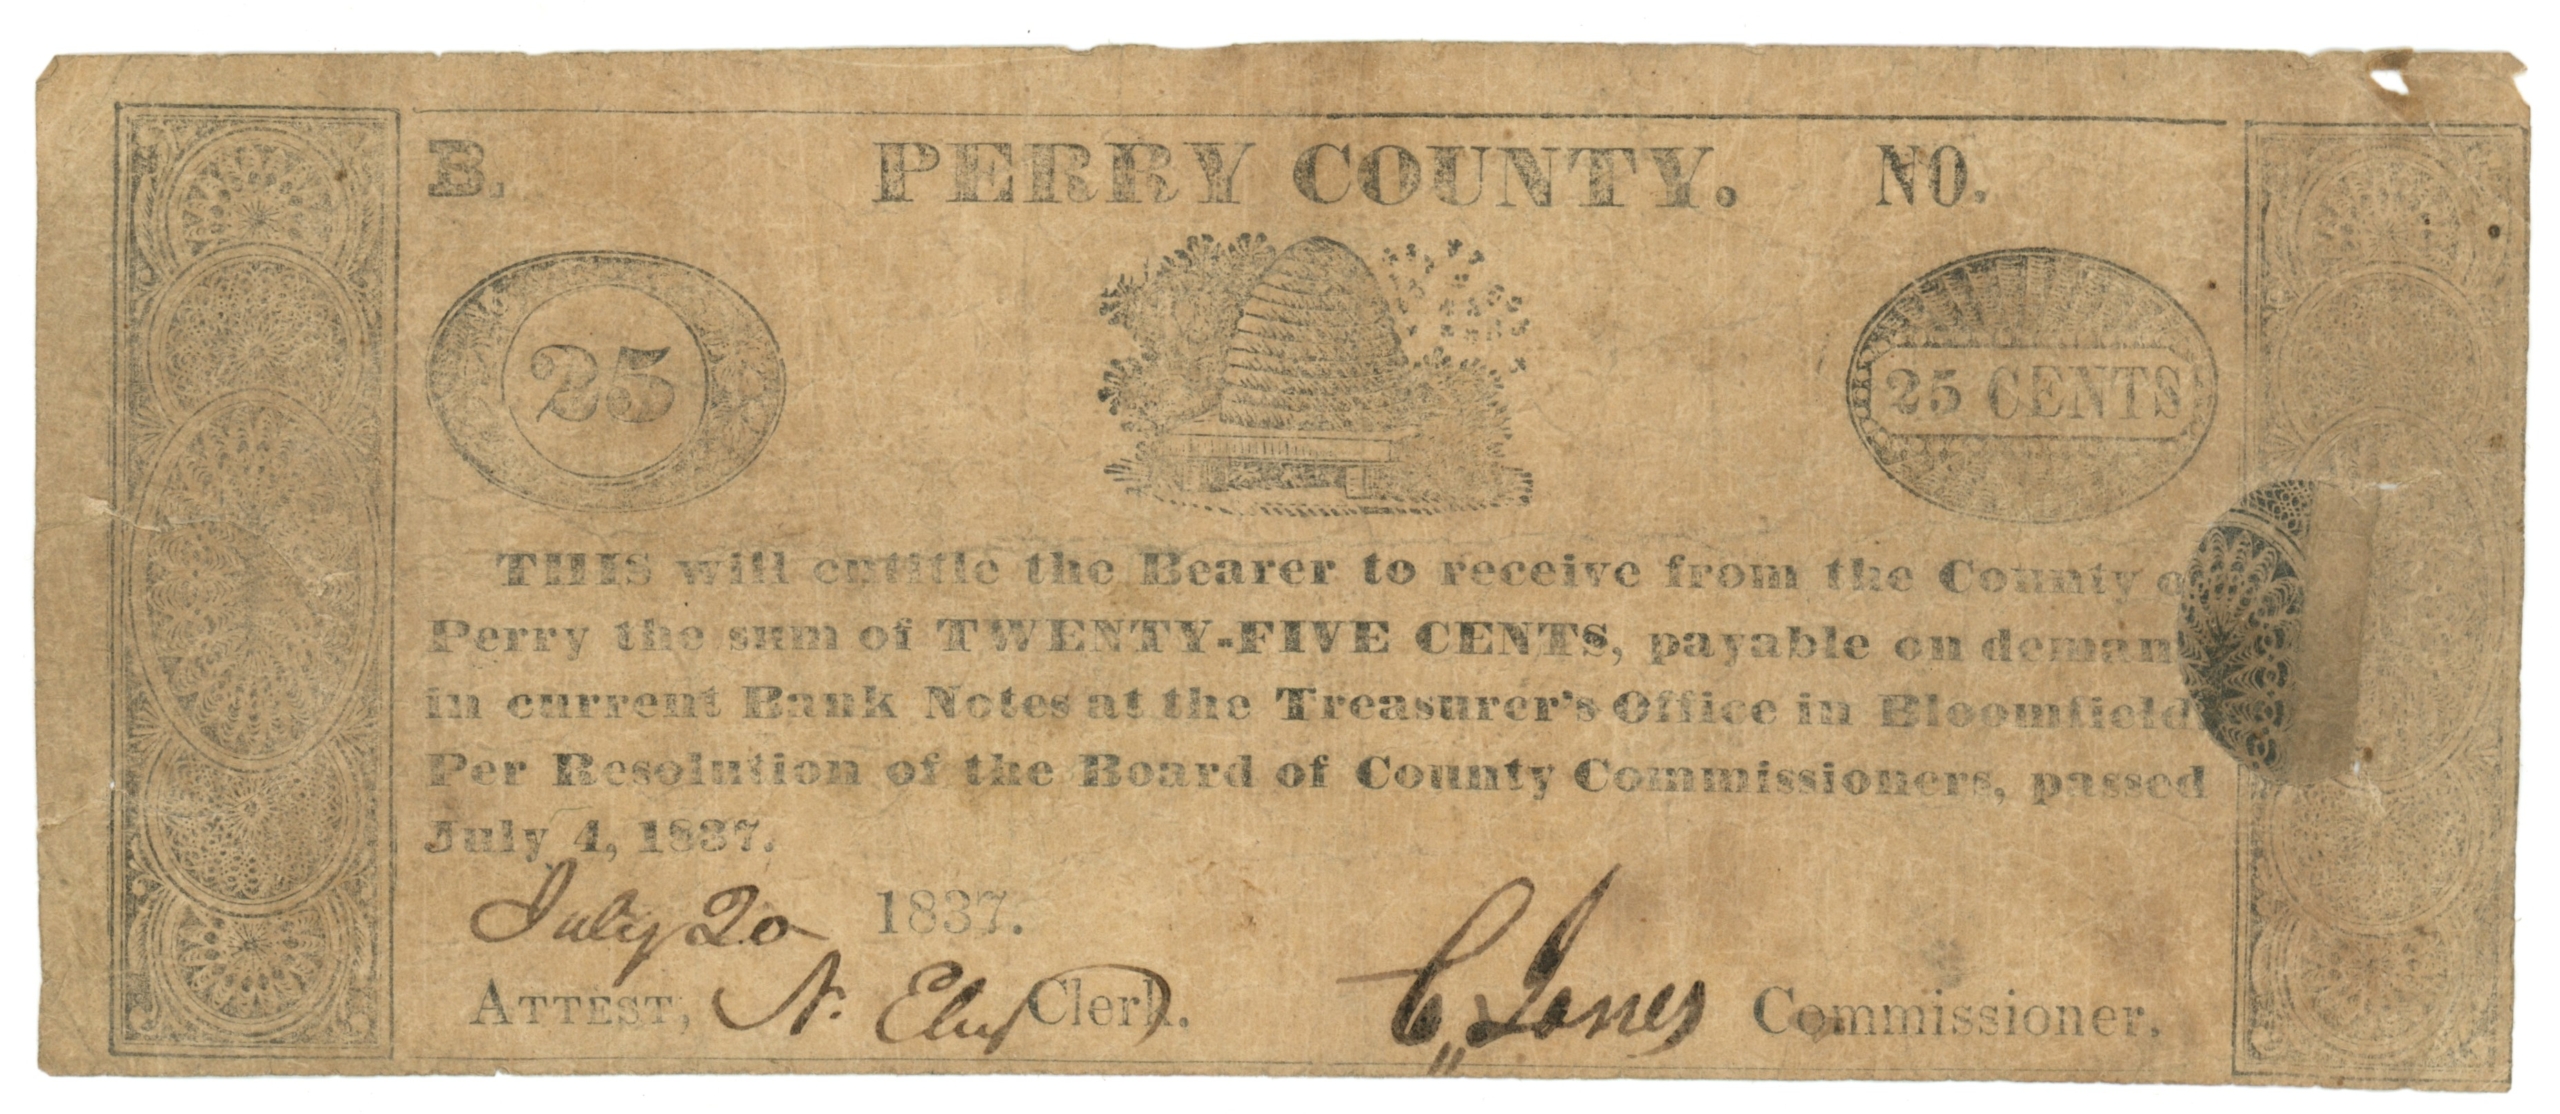 B. PERRY COUNTY. NO.
25
25 CENTS
THIS will entitle the Bearer to receive from the County o
Perry the sum of TWENTY-FIVE CENTS, payable on deman
in current Bank Notes at the Treasurer's Office in Bloomfield
Per Resolution of the Board of County Commissioners, passed
July 4, 1837.
July 20 1837.
ATTEST, N. Eby Clerk.
C. Jones Commissioner.